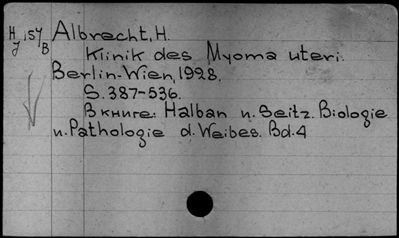 H 157 Albrecht, H.
J B
Klinik des Myoma uteri.
Berlin-Wien, 1928.
S. 387-536.
В книге: Halban u. Seitz. Biologie
u. Pathologie d. Weibes. Bd. 4